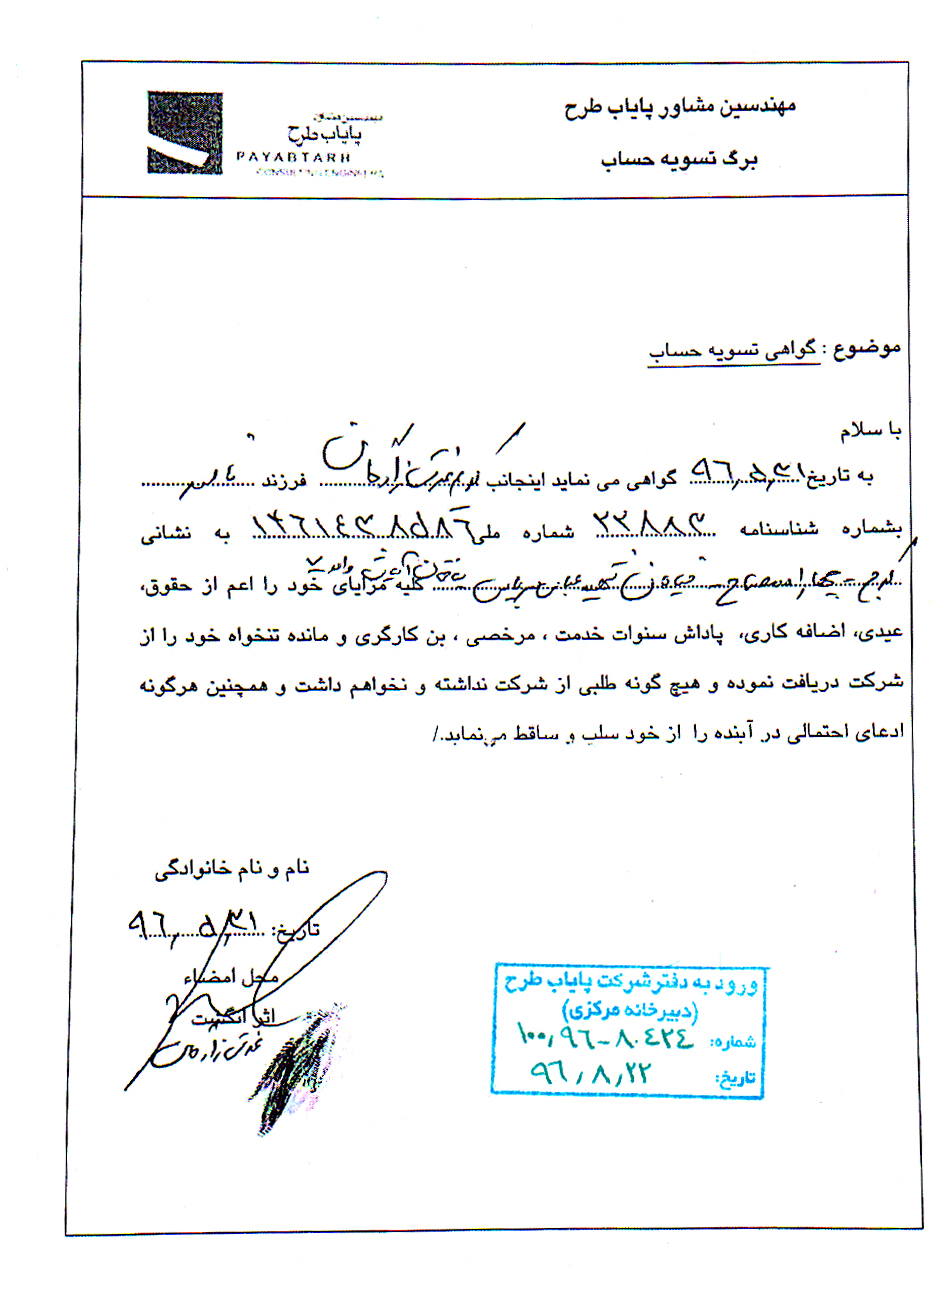 مهندسین مشاور پایاب طرح
برگ تسویه حساب
مهندسین مشاور
پایاب طرح
PAYABTARH
CONSULTING ENGINEERS
موضوع : گواهی تسویه حساب
با سلام
به تاریخ ۹۶,۵,۳۱ گواهی می نماید اینجانب فرزند
بشماره شناسنامه ۲۳۸۸۳ شماره ملی به نشانی
کرج - کلیه مزایای خود را اعم از حقوق،
عیدی، اضافه کاری، پاداش سنوات خدمت ، مرخصی ، بن کارگری و مانده تنخواه خود را از
شرکت دریافت نموده و هیچ گونه طلبی از شرکت نداشته و نخواهم داشت و همچنین هرگونه
ادعای احتمالی در آینده را از خود سلب و ساقط می‌نماید./
نام و نام خانوادگی
تاریخ: ۹۶,۵,۳۱
محل امضاء
اثر انگشت
ورود به دفتر شرکت پایاب طرح
(دبیرخانه مرکزی)
شماره: ۱۰۰,۹۶-۸۰۴۲۴
تاریخ: ۹۶,۸,۲۲